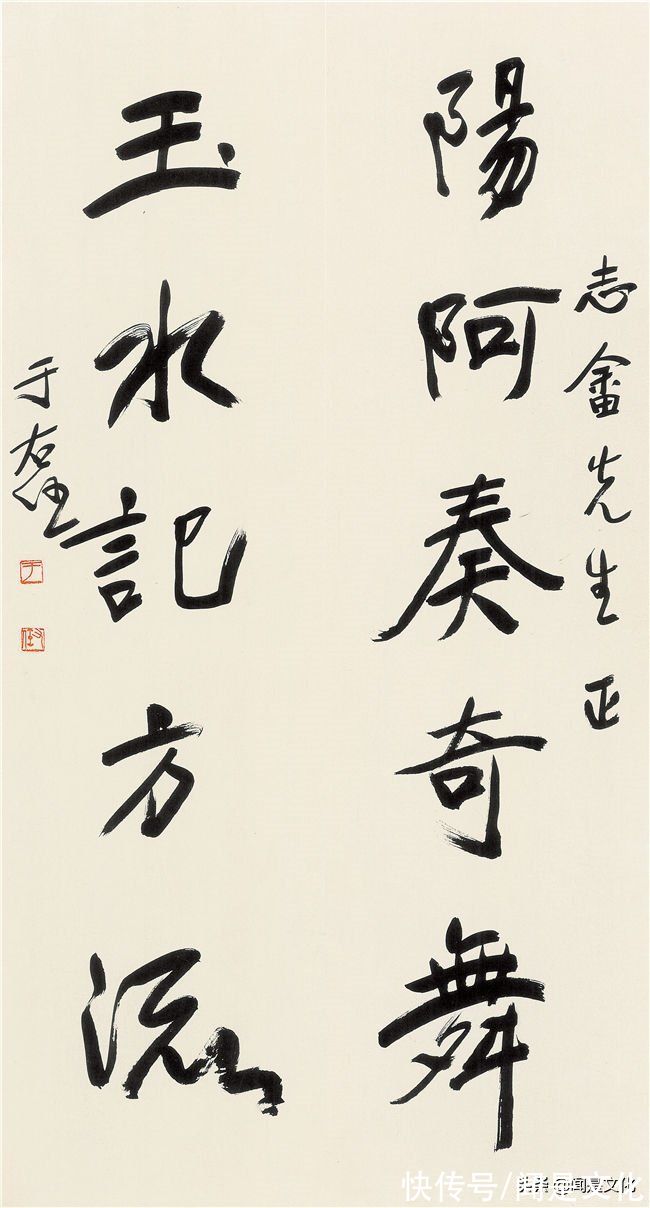 志畬先生正
陽阿奏奇舞
玉水記方流
于右任
头条 @闻是文化
快传号/闻是文化